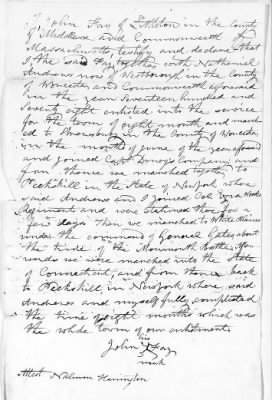 I, John Fay of Littleton in the County
of Middlesex and Commonwealth of
Massachusetts, testify and declare that
I the said Fay together with Nathaniel
Andrews now of Westborough in the County
of Worcester, and Commonwealth aforesaid
in the year Seventeen hundred and
Seventy eight enlisted into the service
for the term of eight months and march
ed to Shrewsbury in the County of Worcester
in the month of June of the year aforesaid
and joined Capt Company and
from thence we marched together to
Peekskill in the State of New York where
said Andrews and I joined Col
Regiment and were Stationed there for a
few days Then we marched to White Plains
under the command of General Gates about
the time of the Monmouth Battle. After
wards we were marched into the State
of Connecticut, and from thence back
to Peekskill in New York where said
Andrews and myself fully completed
the time of eight months which was
the whole term of our enlistment
his
John X Fay
mark
Attest Nahum Harrington